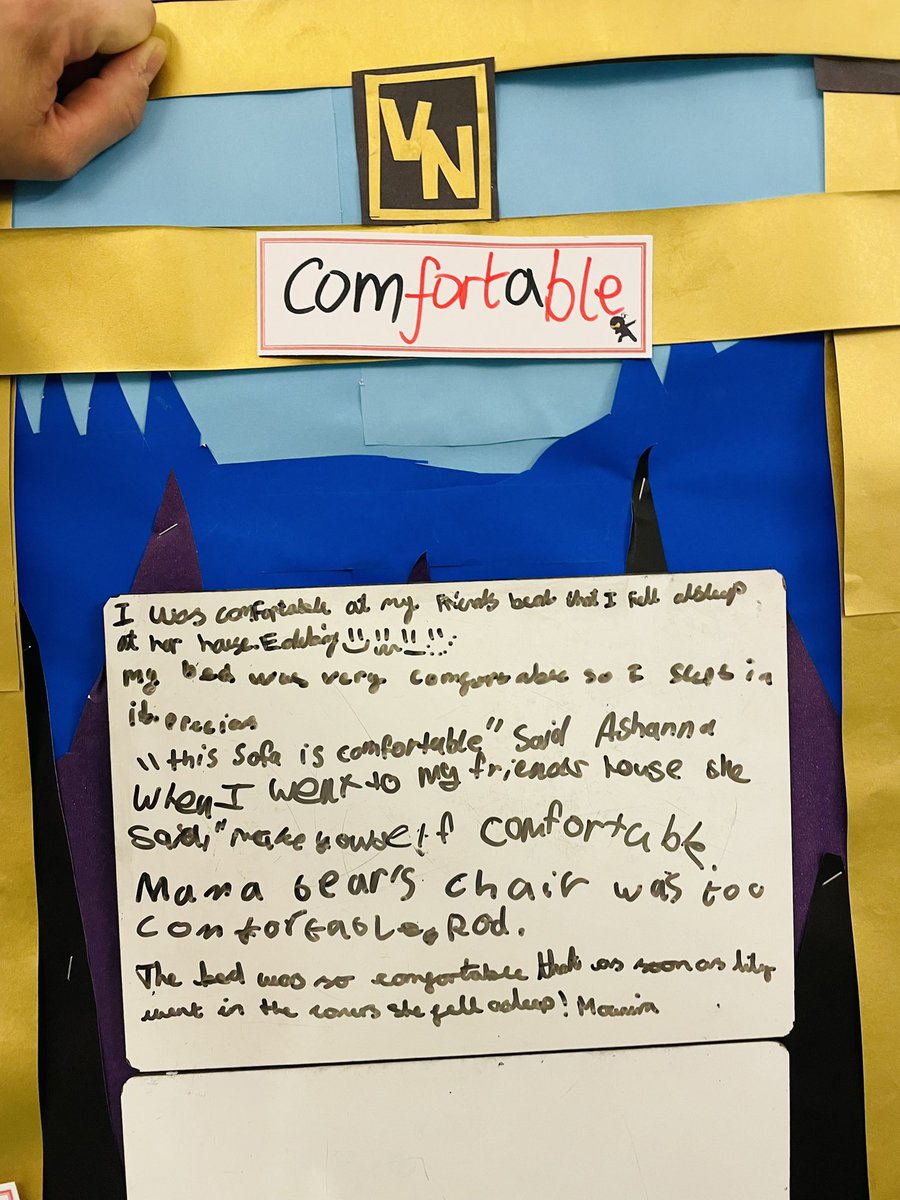 VN
comfortable
I was comfortable at my friends that I fell asleep
at her house.
my bed was very comfortable so I slept in
it.
"this sofa is comfortable" said Ashanna
When I went to my friends house she
said, "make youself comfortable
Mama bear's chair was too
comfortable. Rod.
The bed was so comfortable that as soon as lily
went in the covers she fell asleep!